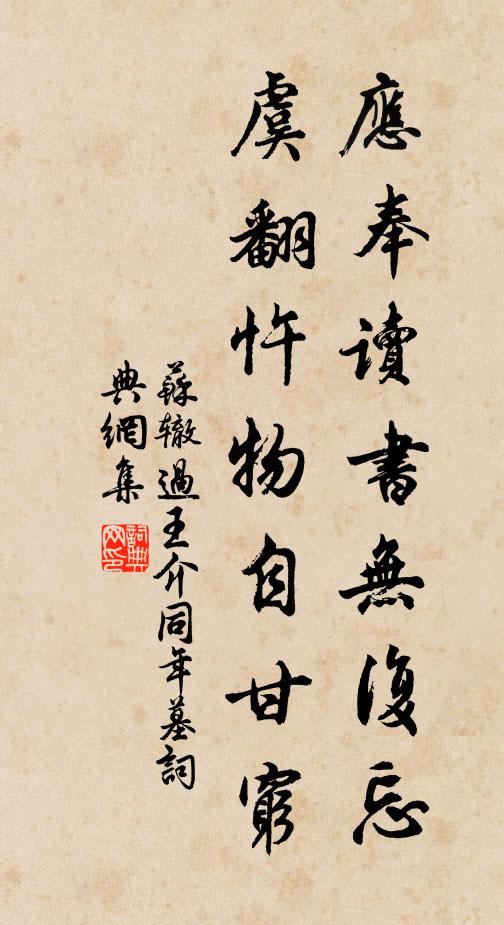 應奉讀書無復忘
虞翻忤物自甘窮
蘇轍過王介同年墓詞
典網集
詞典网印